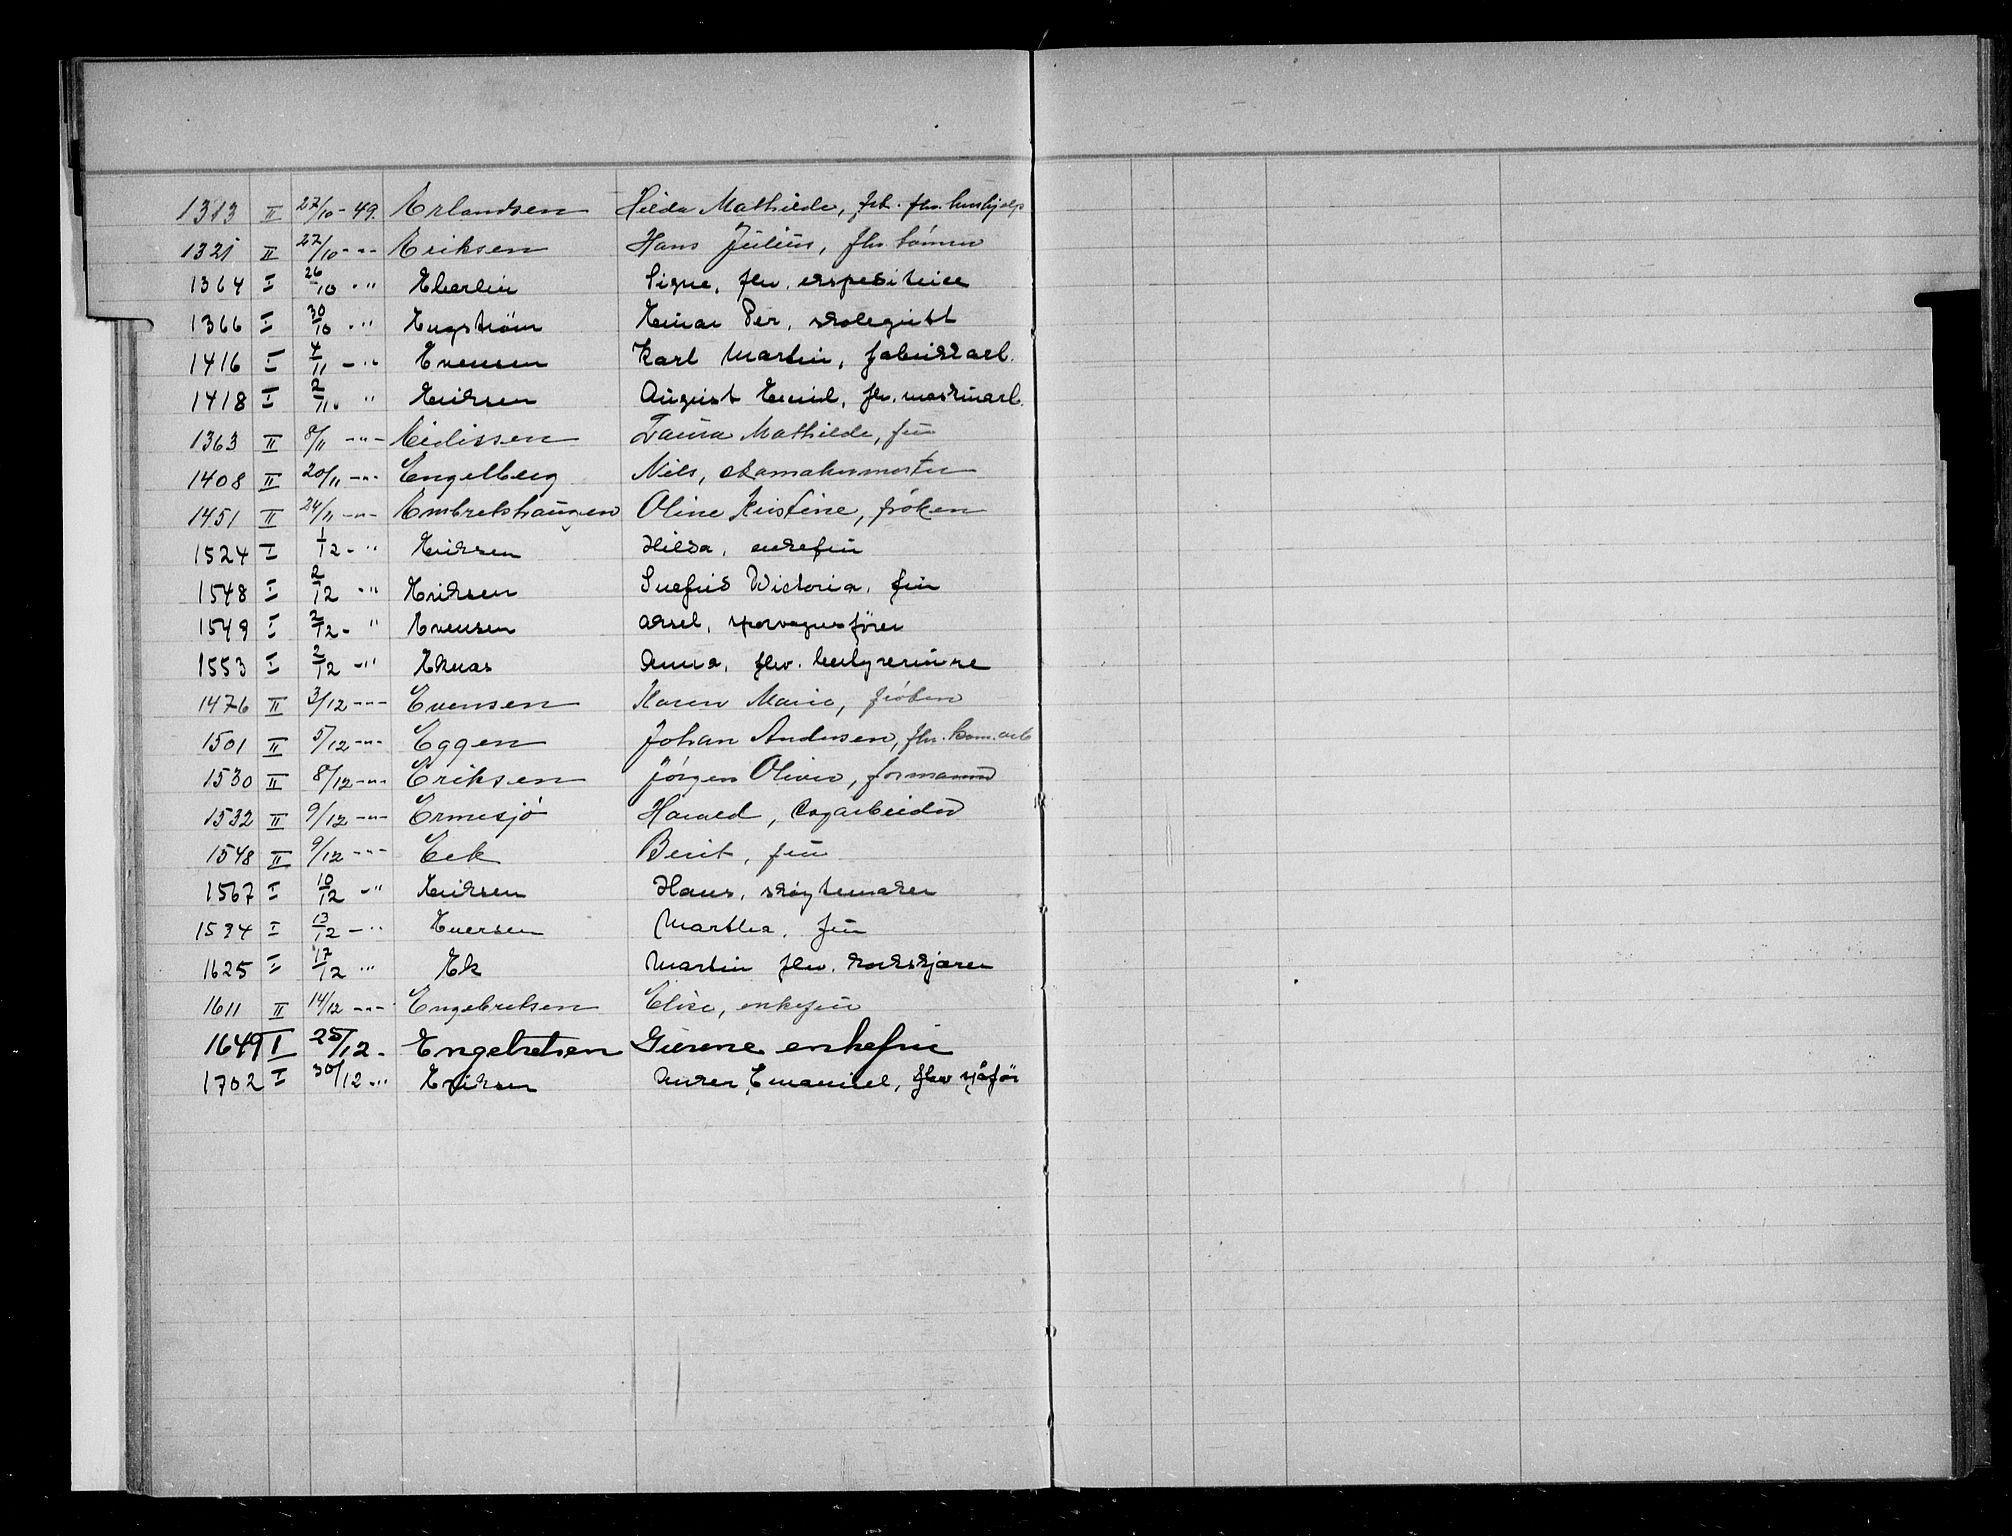 1313 II 27/10 - 49. Erlandsen Hilda Mathilde, frk. fhv. hushjelp
1321 II 27/10 - " - Eriksen Hans Julius, fhv. tömmer
1364 I 26/10 - " Eberlin Signe, fhv. ekspeditrice
1366 I 30/10 - " Engström Einar Per, skolegutt
1416 I 4/11 - " Evensen Karl Martin, fabrikkarb.
1418 I 2/11 - " Eriksen August Emil, fhv. maskinarb.
1363 II 8/11 - " - Eidissen Laura Mathilde, fru
1408 II 20/11 - " - Engelberg Nils,
1451 II 24/11 - " - Embretshaugen Oline Kristine, fröken
1524 I 1/12 - " Eriksen Hilda, enkefru
1548 I 2/12 - " Eriksen Snefrid Victoria, fru
1549 I 2/12 - " Evensen Aksel, sporvognsförer
1553 I 2/12 - " Eknas Anna, fhv. bestyrerinne
1476 II 3/12 - " - Evensen Karen Marie, fröken
1501 II 5/12 - " - Eggen Johan Andersen, fhv. kom.arb
1530 II 8/12 - " - Eriksen Jörgen Oliver, formann
1532 II 9/12 - " - Ermesjö Harald, sagarbeider
1548 II 9/12 - " - Eek Berit, fru
1567 I 10/12 - " Eriksen Hans, skøytemaker
1534 I 13/12 - " Eversen Martha, fru
1625 I 17/12 " Ek Martin fhv. korkskjærer
1611 II 14/12 - " - Engebretsen Elise, enkefru
1649 I 25/12 - Engebretsen Gurine enkefru
1702 I 30/12 - " Eriksen Anker Emanuel, fhv sjåför